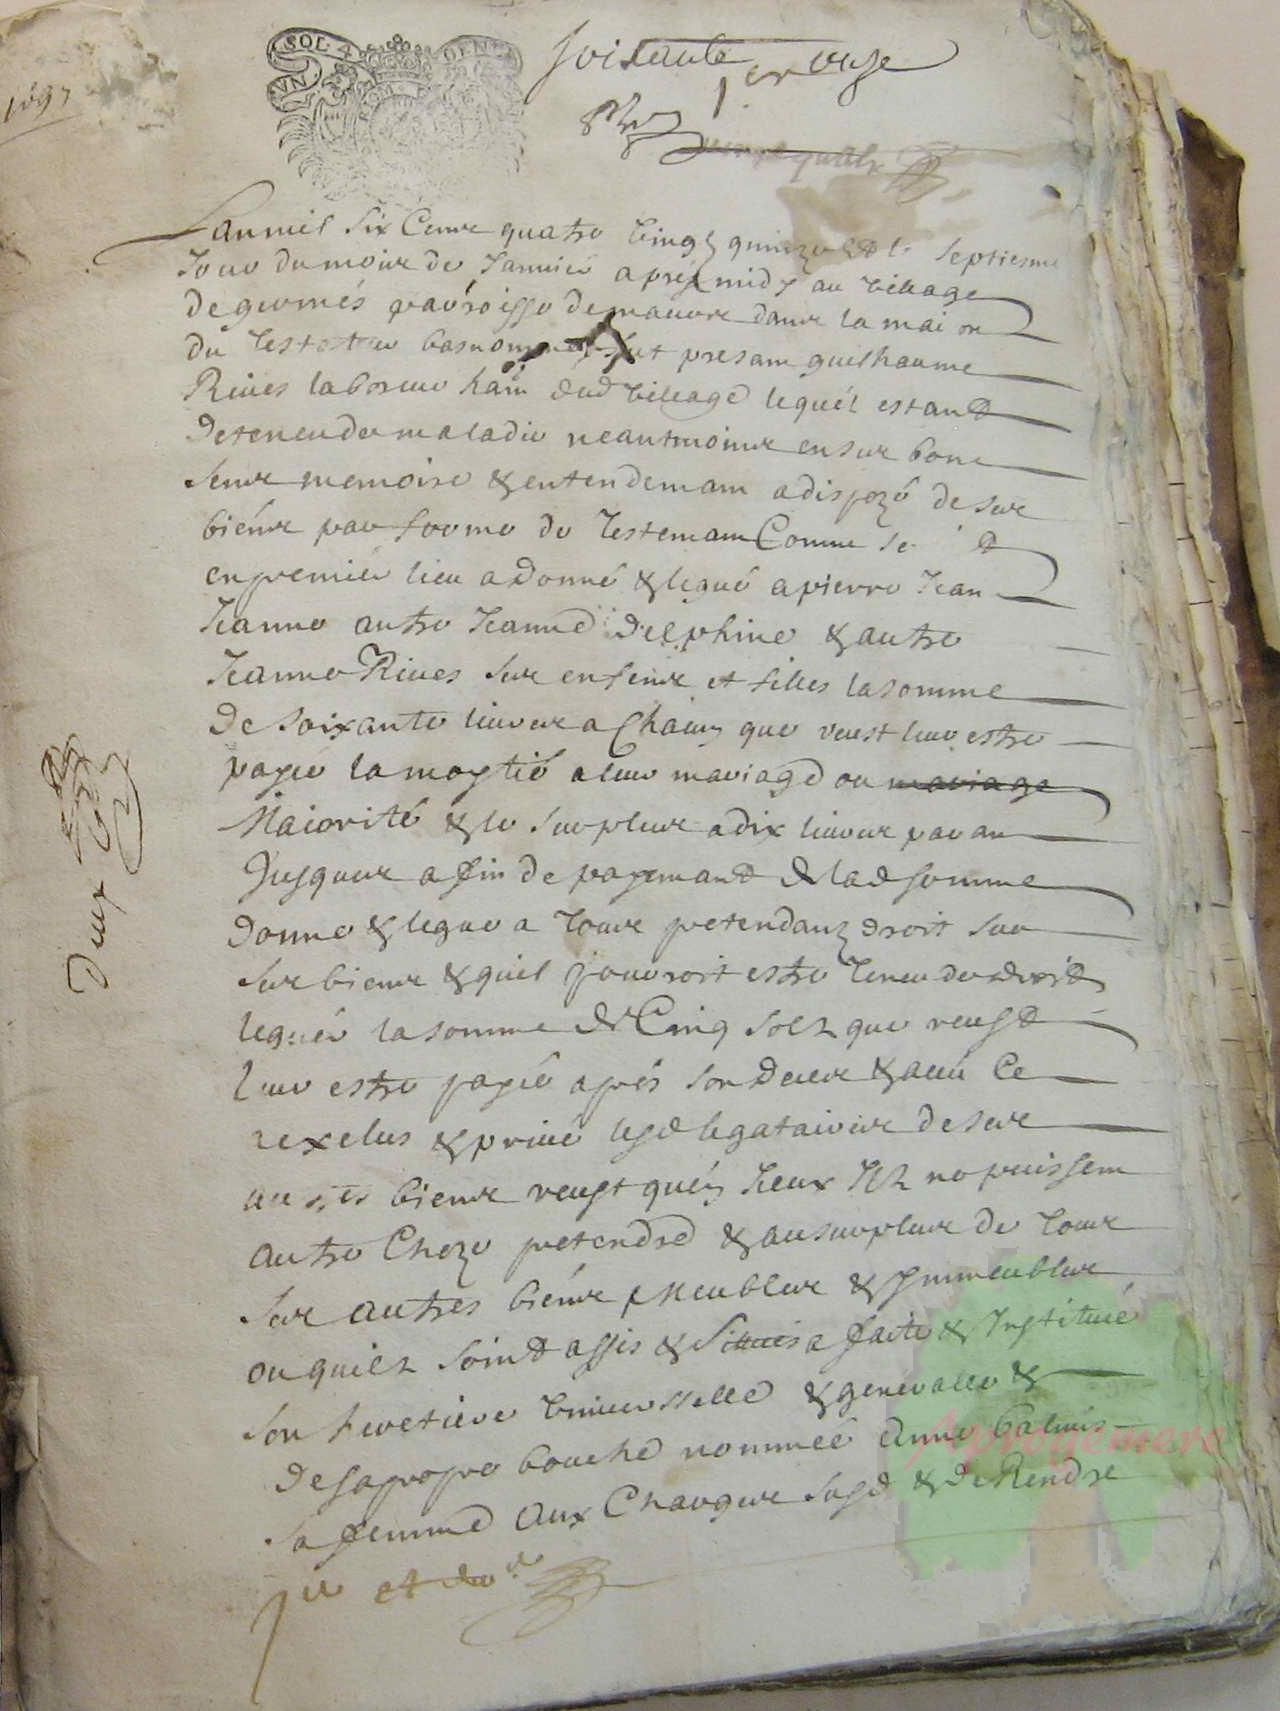 1697
VN SOL 4 DEN
soixante et onze
Lan mil six cens quatre vingtz quinze & le septiesme
Jour du mois de Janvier apres midy au village
de germés parroisse de mauvre dans la maison
du testateur bas nommé fut presam guilhaume
Rives laboreur hain dud village lequel estant
detenu de maladie neantmoins en sus bons
sens memoire & entendemam a dispozé de ses
biens par forme de testemam Comme se
en premier lieu a donné & legué a pierre Jean
Jeanne autre Jeanne delphine & autre
Jeanne Rives ses enfens et filles la somme
de soixante livres a Chaün que veust leur estre
payee la moytié a leur mariage ou mariage
Maiorité & le surplus a dix livres par an
Jusques a fin de payemant de lad somme
donne & legue a tous pretendanz droit sur
ses biens & quil pouroit estre tenu de droit
leguer la somme de Cinq solz que veust
leur estre payée après son deces & aveu Ce
exclus & privé lesd legataires de ses
autres biens veust quen iceux Ilz ne puissem
autre Choze pretendre & au surplus de tous
ses autres biens Meubles & Immeubles
ou quilz soint assis & situés a faite & Institué
son heretiere universselle & generalle &
de sa propre bouche nommée Anne balmés
sa femme aux Charges susd & de Rendre
pr et der
Deux
Aprogemere